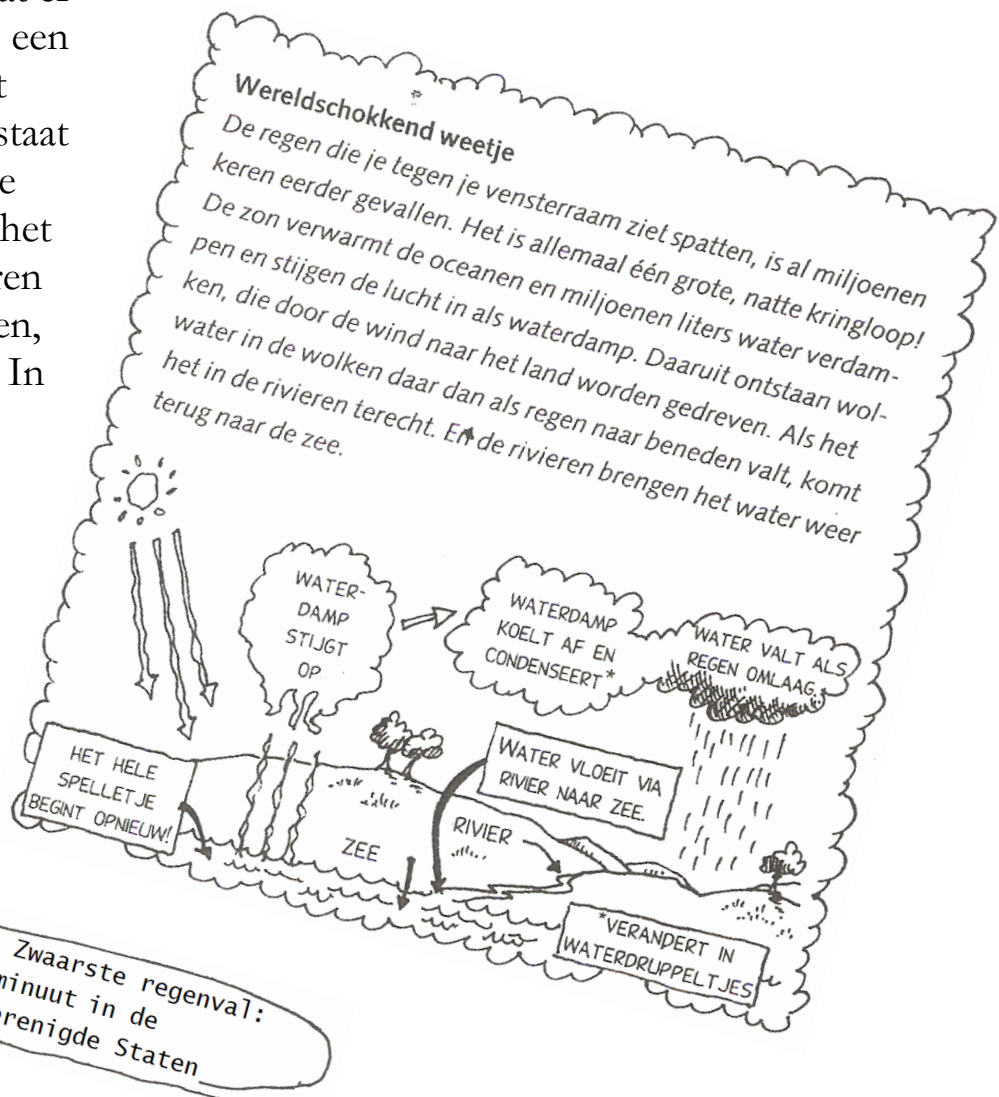 een
t
staat
e
het
en,
In
Wereldschokkend weetje
De regen die je tegen je vensterraam ziet spatten, is al miljoenen
keren eerder gevallen. Het is allemaal één grote, natte kringloop!
De zon verwarmt de oceanen en miljoenen liters water verdam-
pen en stijgen de lucht in als waterdamp. Daaruit ontstaan wol-
ken, die door de wind naar het land worden gedreven. Als het
water in de wolken daar dan als regen naar beneden valt, komt
het in de rivieren terecht. En de rivieren brengen het water weer
terug naar de zee.
WATER-
DAMP
STIJGT
OP
WATERDAMP
KOELT AF EN
CONDENSEERT*
WATER VALT ALS
REGEN OMLAAG.
HET HELE
SPELLETJE
BEGINT OPNIEUW!
ZEE
RIVIER
WATER VLOEIT VIA
RIVIER NAAR ZEE.
*VERANDERT IN
WATERDRUPPELTJES
Zwaarste regenval:
minuut in de
renigde Staten